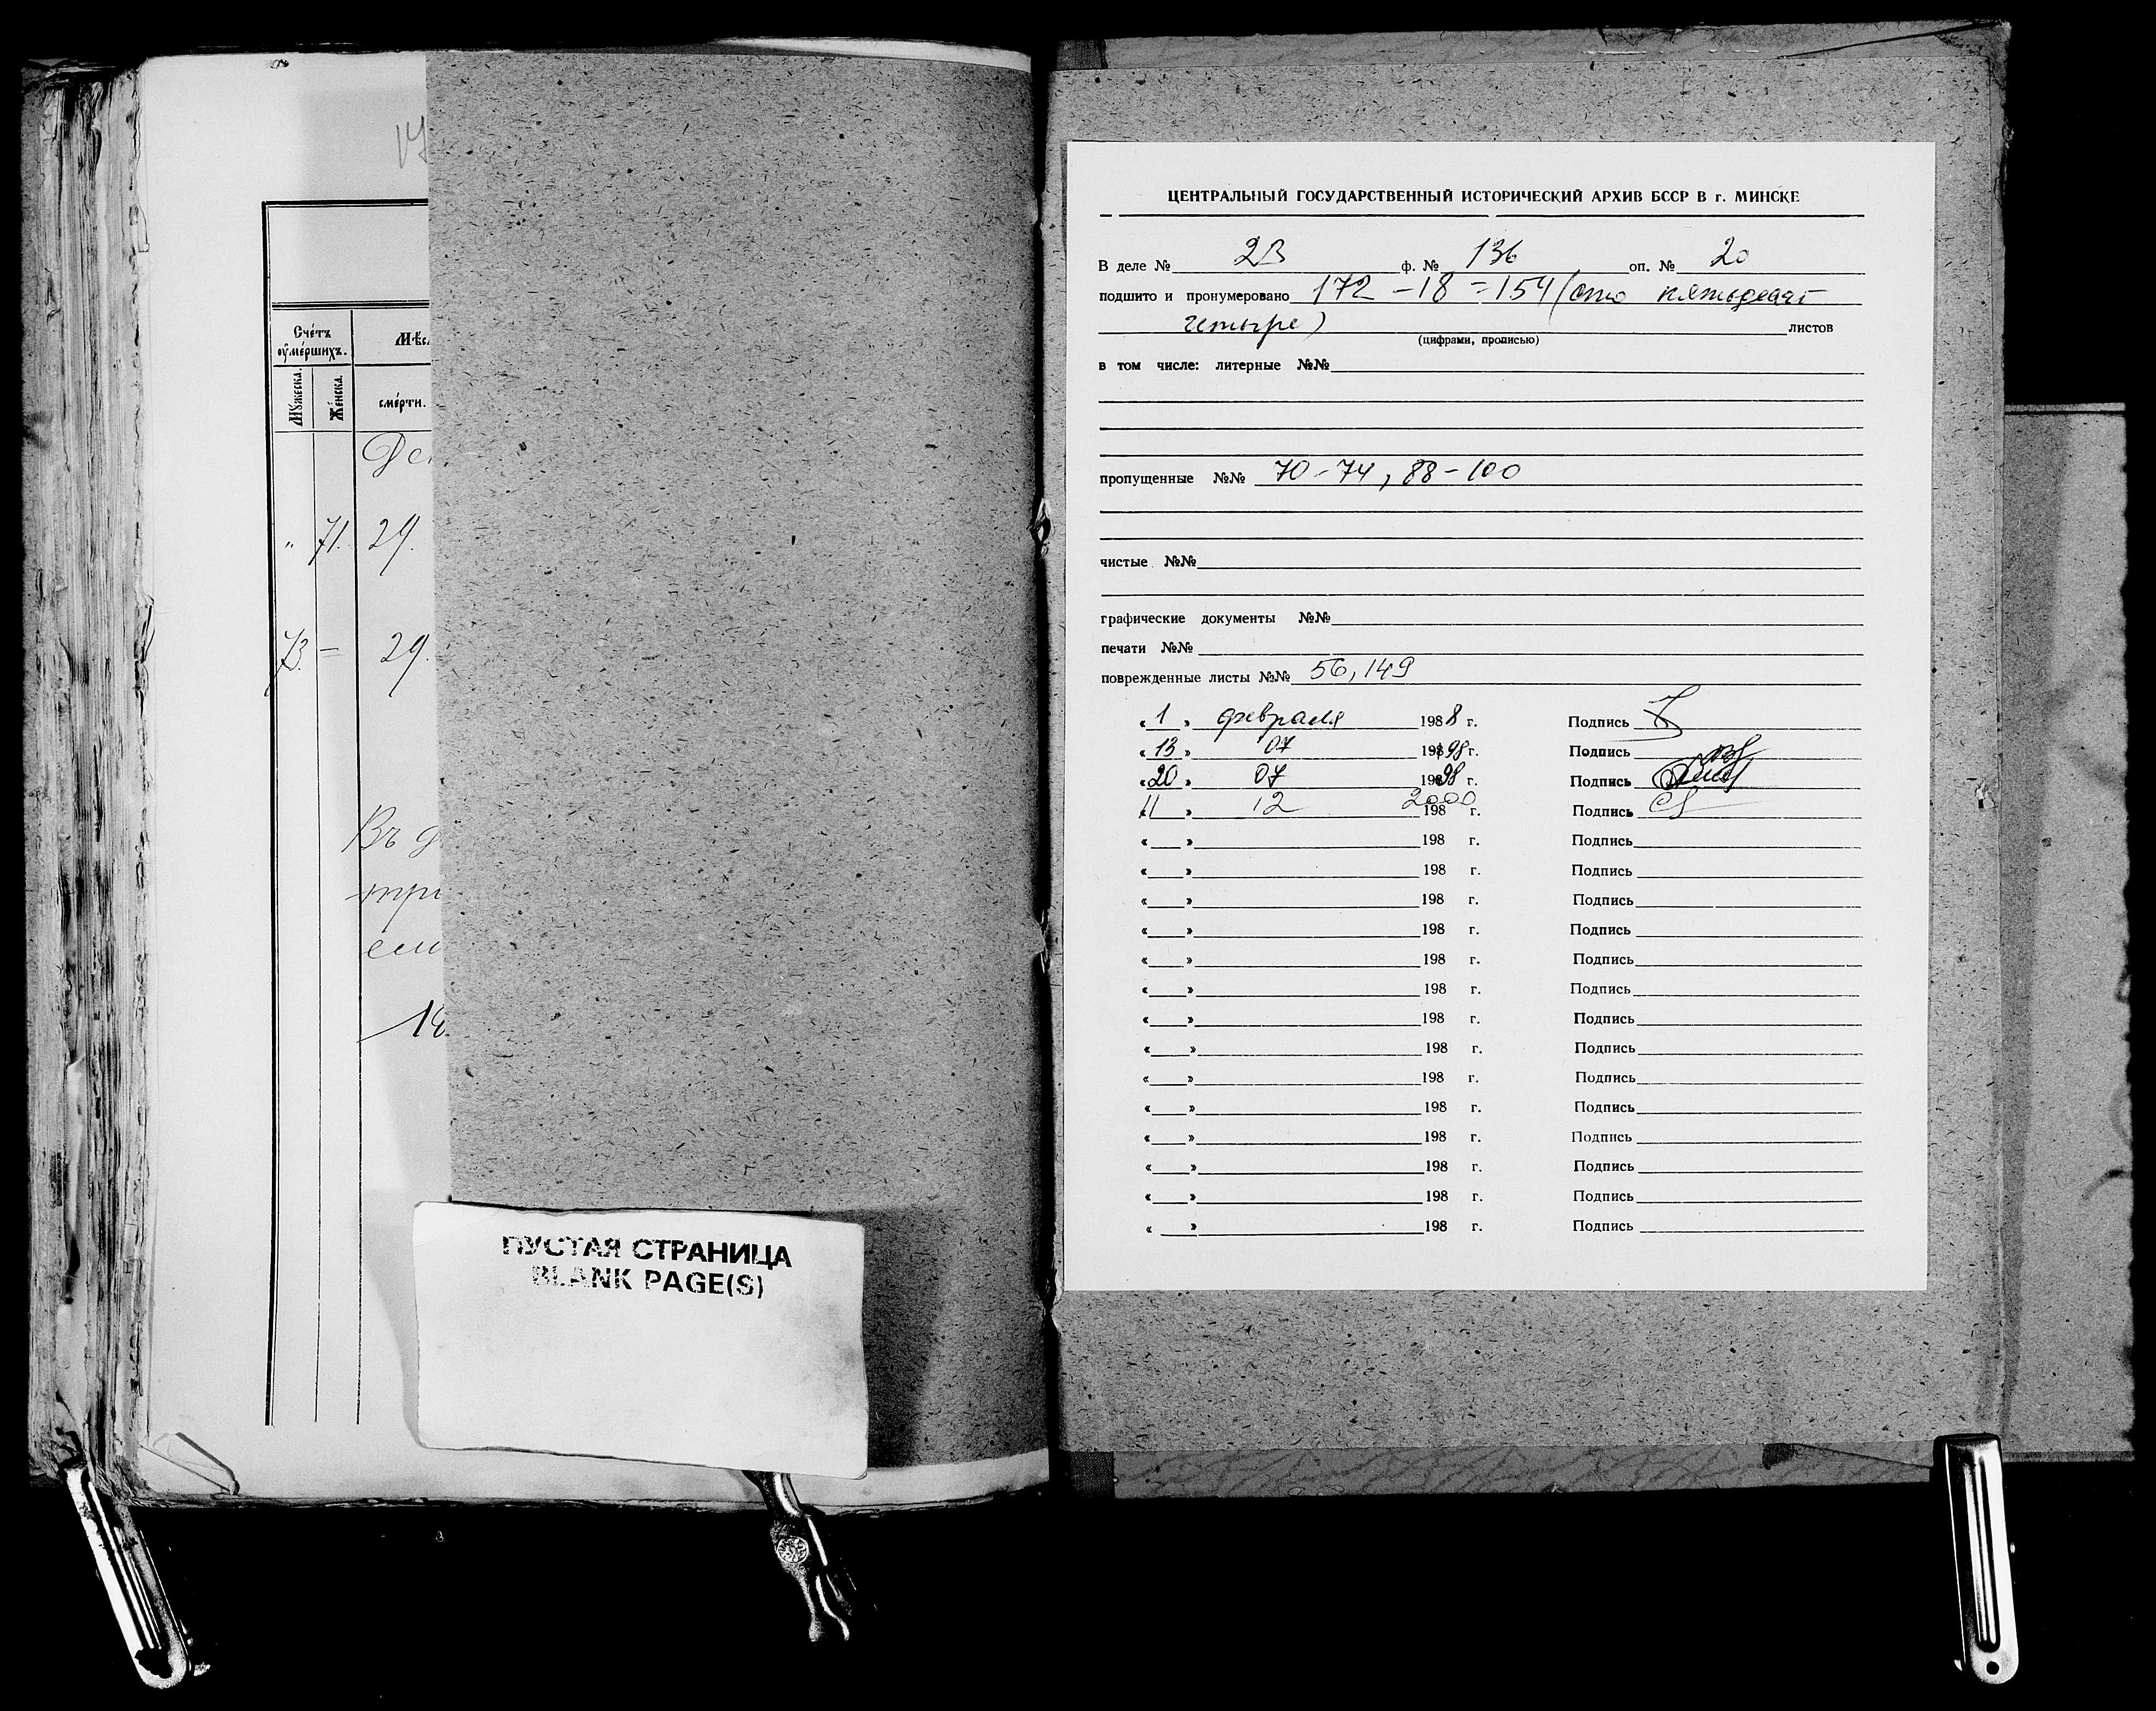 Счéтъ
оумéршихъ.
Мꙋжеска.
Жéнска.
смéрти.
" 71. 29.
73. – 29.
Въ
ПУСТАЯ СТРАНИЦА
BLANK PAGE(S)
ЦЕНТРАЛЬНЫЙ ГОСУДАРСТВЕННЫЙ ИСТОРИЧЕСКИЙ АРХИВ БССР В г. МИНСКЕ
В деле № 23 ф. № 136 оп. № 20
подшито и пронумеровано 172 – 18 = 154 (сто пятьдесят
четыре) листов
(цифрами, прописью)
в том числе: литерные №№
пропущенные №№ 70-74, 88-100
чистые №№
графические документы №№
печати №№
поврежденные листы №№ 56, 149
« 1 » февраля 1988 г. Подпись
« 13 » 07 98 г. Подпись
« 20 » 07 98 г. Подпись
« 11 » 12 2000 198 г. Подпись
« » 198 г. Подпись
« » 198 г. Подпись
« » 198 г. Подпись
« » 198 г. Подпись
« » 198 г. Подпись
« » 198 г. Подпись
« » 198 г. Подпись
« » 198 г. Подпись
« » 198 г. Подпись
« » 198 г. Подпись
« » 198 г. Подпись
« » 198 г. Подпись
« » 198 г. Подпись
« » 198 г. Подпись